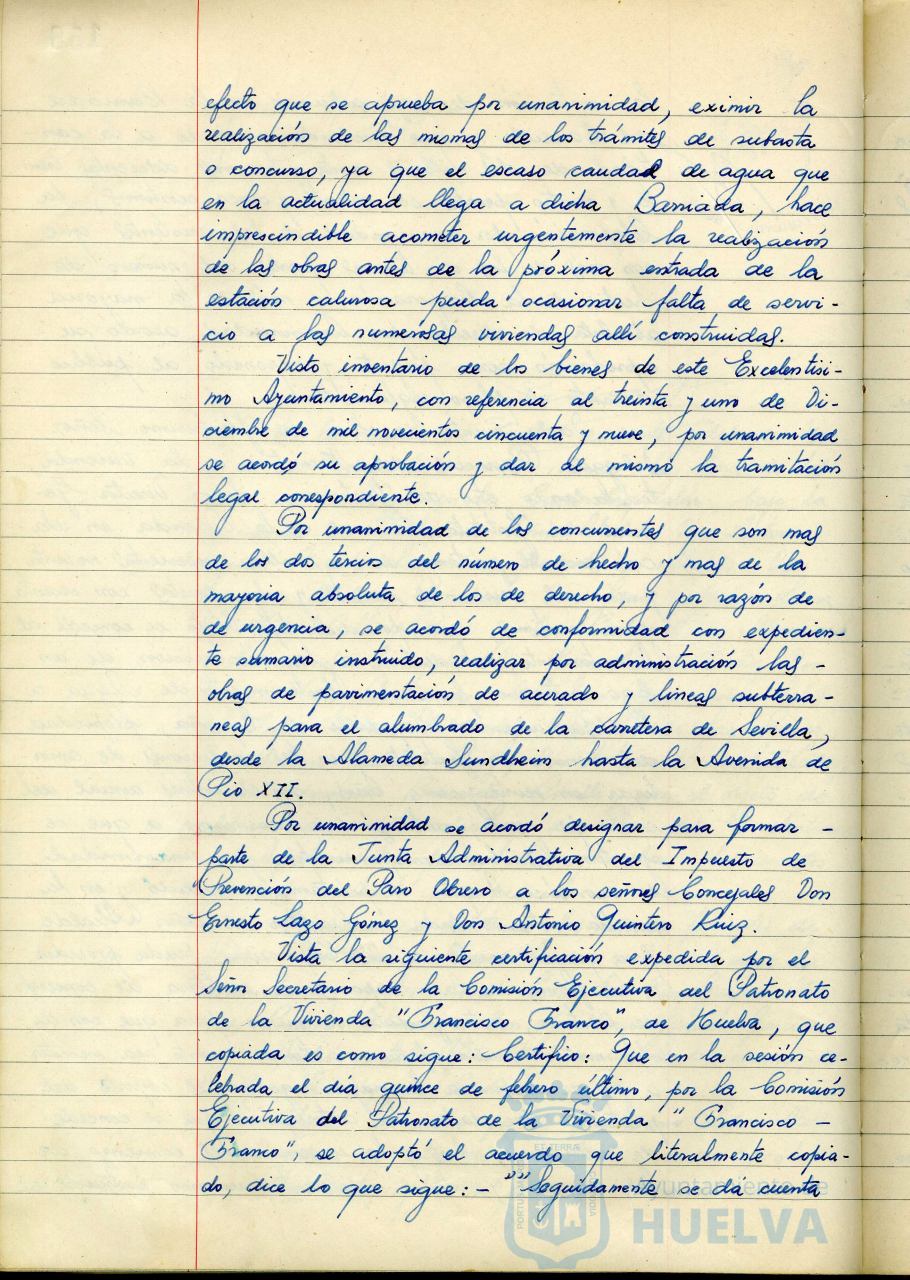 efecto que se aprueba por unanimidad, eximir la
realización de las mismas de los trámites de subasta
o concurso, ya que el escaso caudal de agua que
en la actualidad llega a dicha Barriada, hace
imprescindible acometer urgentemente la realización
de las obras antes de la próxima entrada de la
estación calurosa pueda ocasionar falta de servi-
cio a las numerosas viviendas allí construidas.
Visto inventario de los bienes de este Excelentisi-
mo Ayuntamiento, con referencia al treinta y uno de Di-
ciembre de mil novecientos cincuenta y nueve, por unanimidad
se acordó su aprobación y dar al mismo la tramitación
legal correspondiente.
Por unanimidad de los concurrentes que son mas
de los dos tercios del número de hecho y mas de la
mayoria absoluta de los de derecho, y por razón de
de urgencia, se acordó de conformidad con expedien-
te sumario instruido, realizar por administración las -
obras de pavimentación de acerado y lineas subterra-
neas para el alumbrado de la carretera de Sevilla,
desde la Alameda Sundheim hasta la Avenida de
Pio XII.
Por unanimidad se acordó designar para formar -
parte de la Junta Administrativa del Impuesto de
Prevención del Paro Obrero a los señores Concejales Don
Ernesto Lazo Gómez y Don Antonio Quintero Ruiz.
Vista la siguiente certificación expedida por el
Señor Secretario de la Comisión Ejecutiva del Patronato
de la Vivienda "Francisco Franco", de Huelva, que
copiada es como sigue: Certifico: Que en la sesión ce-
lebrada el día quince de febrero último, por la Comisión
Ejecutiva del Patronato de la Vivienda "Francisco -
Franco", se adoptó el acuerdo que literalmente copia-
do, dice lo que sigue: - ""Seguidamente se dá cuenta
Ayuntamiento de
HUELVA